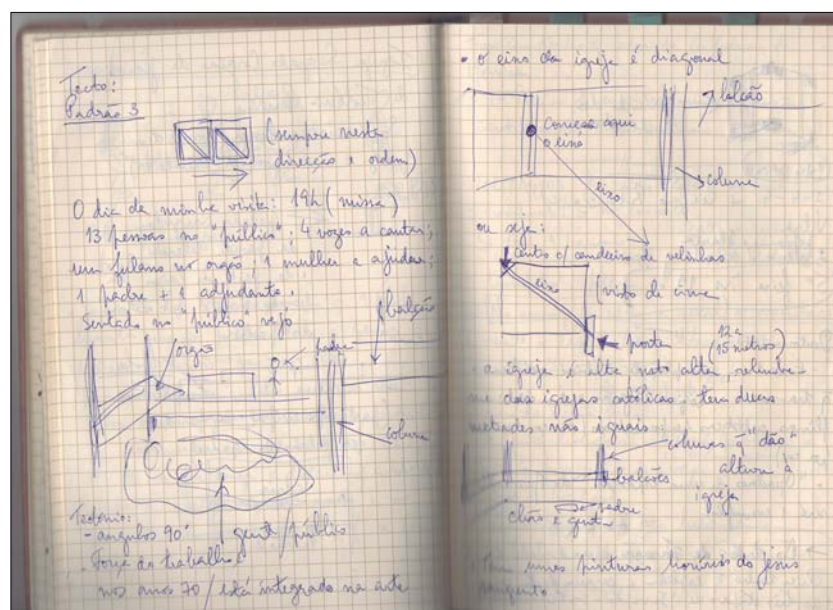 Tecto:
Padrão 3
(sempre nesta
direcção e ordem)
O dia da minha visita: 19h (missa)
13 pessoas no "público"; 4 vozes a cantar;
um fulano no orgão; 1 mulher a ajudar;
1 padre + 1 adjudante.
Sentado no "público" vejo
balcão
orgão
padre
coluna
gente/público
- angulos 90°
Força do trabalho
nos anos 70 / está integrado na arte
• o eixo da igreja é diagonal
balcão
começa aqui
o eixo
coluna
eixo
ou seja:
canto c/ candeeiro de velinhas
eixo
(visto de cima
porta
(12 a
15 metros)
• a igreja é alta
me das igrejas católicas, tem duas
metades não iguais
colunas q "dão"
altura à
igreja
balcões
padre
chão e gente
umas pinturas do jesus